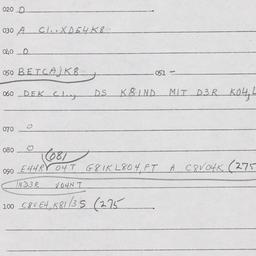 020 O
030 A C1..XDE4K8
040 O
050 BETCA)K8 051 -
060 DEK C1.., DS K8IND MIT D3R KO4,L
070 O
080 O
(081
090 E44R O4T G81KL8O4,PT A C8VO4K (275
IND3R VO4NT
100 C8VE4,K81/35 (275